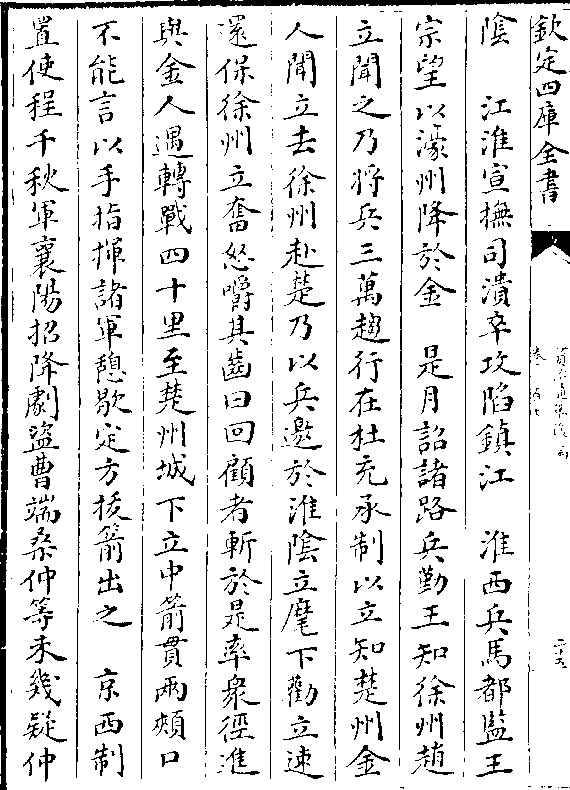 欽定四庫全書
陰　江淮宣撫司潰卒攻陷鎮江　淮西兵馬都監王
宗望以濠州降於金　是月詔諸路兵勤王知徐州趙
立聞之乃將兵三萬趨行在杜充承制以立知楚州金
人聞立去徐州赴楚乃以兵邀於淮陰立麾下勸立速
還保徐州立奮怒嚼其齒曰回顧者斬於是率衆徑進
與金人遇轉戰四十里至楚州城下立中箭貫兩頰口
不能言以手指揮諸軍憩歇定方拔箭出之　京西制
置使程千秋軍襄陽招降劇盜曹端桑仲等未幾疑仲